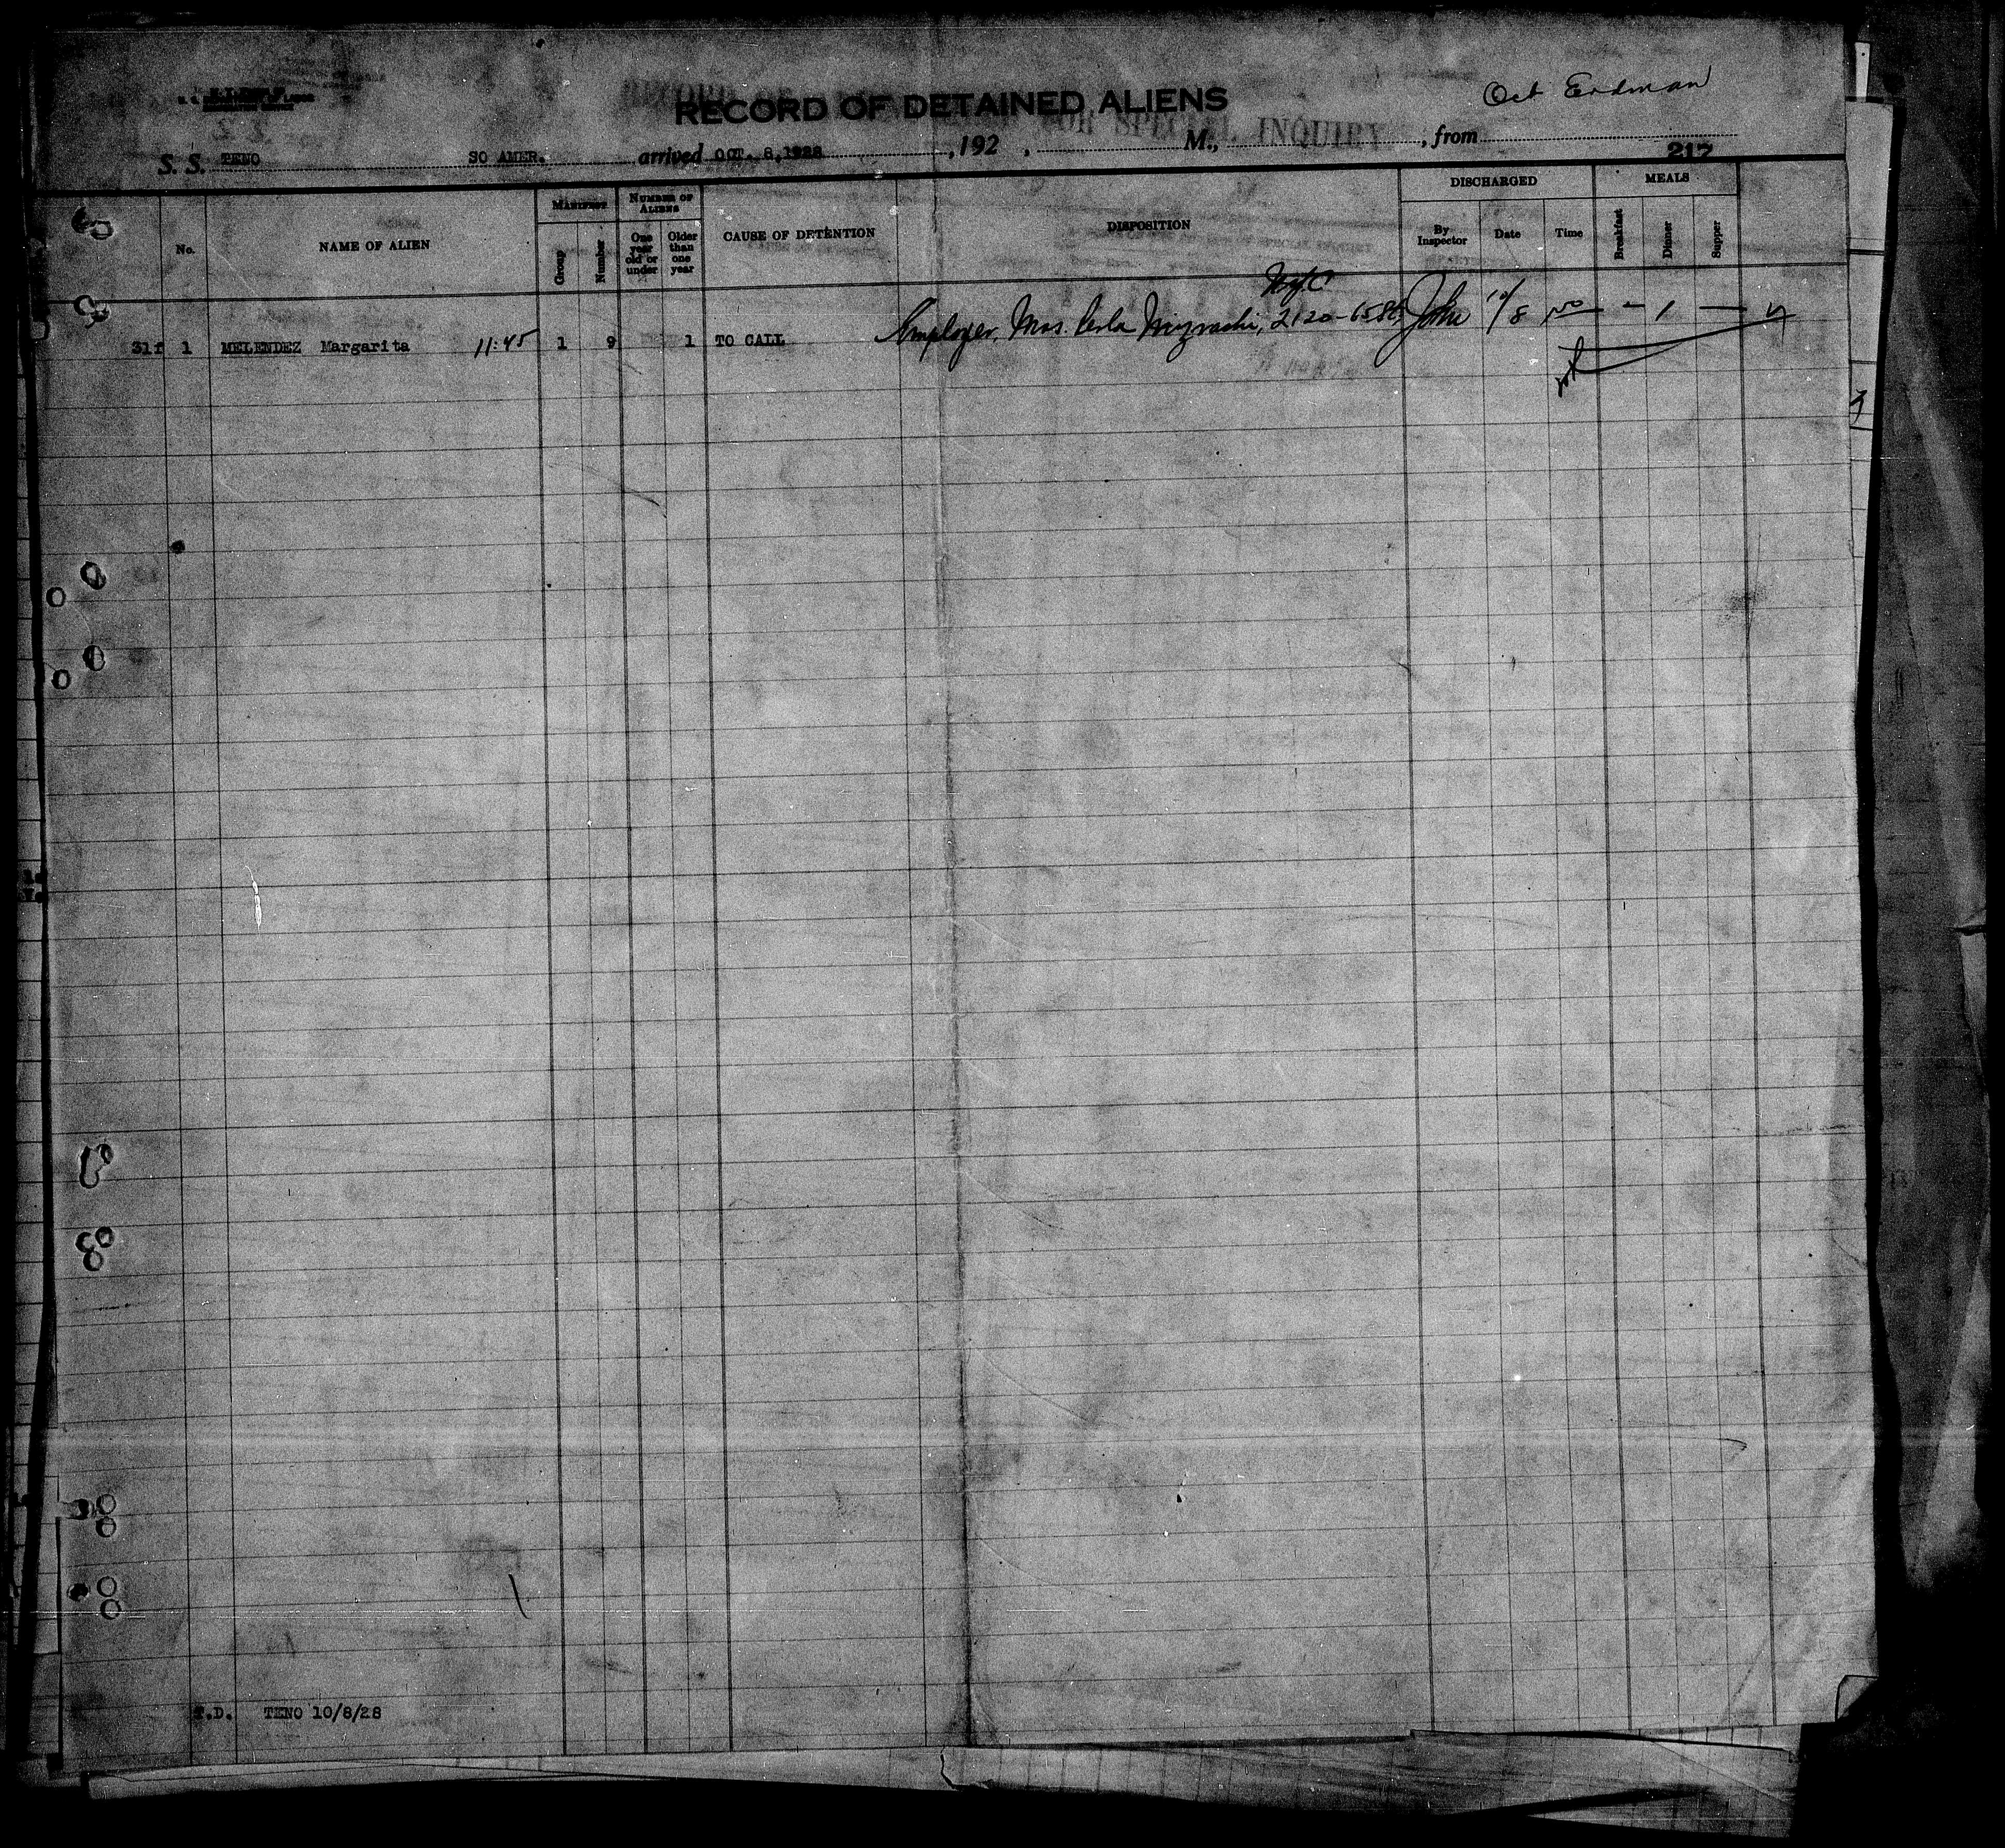 RECORD OF DETAINED ALIENS
FOR SPECIAL INQUIRY
Erdman
S. S. TENO SO AMER. arrived OCT. 8, 1928, 192 , M., , from
217
No. NAME OF ALIEN MANIFEST Group Number NUMBER OF ALIENS One year old or under Older than one year CAUSE OF DETENTION DISPOSITION DISCHARGED By Inspector Date Time MEALS Breakfast Dinner Supper
31f 1 MELENDEZ Margarita 11:45 1 9 1 TO CALL Employer, Mrs. 2120-65 St, NYC John 10/8 – 1 –
T.D. TENO 10/8/28